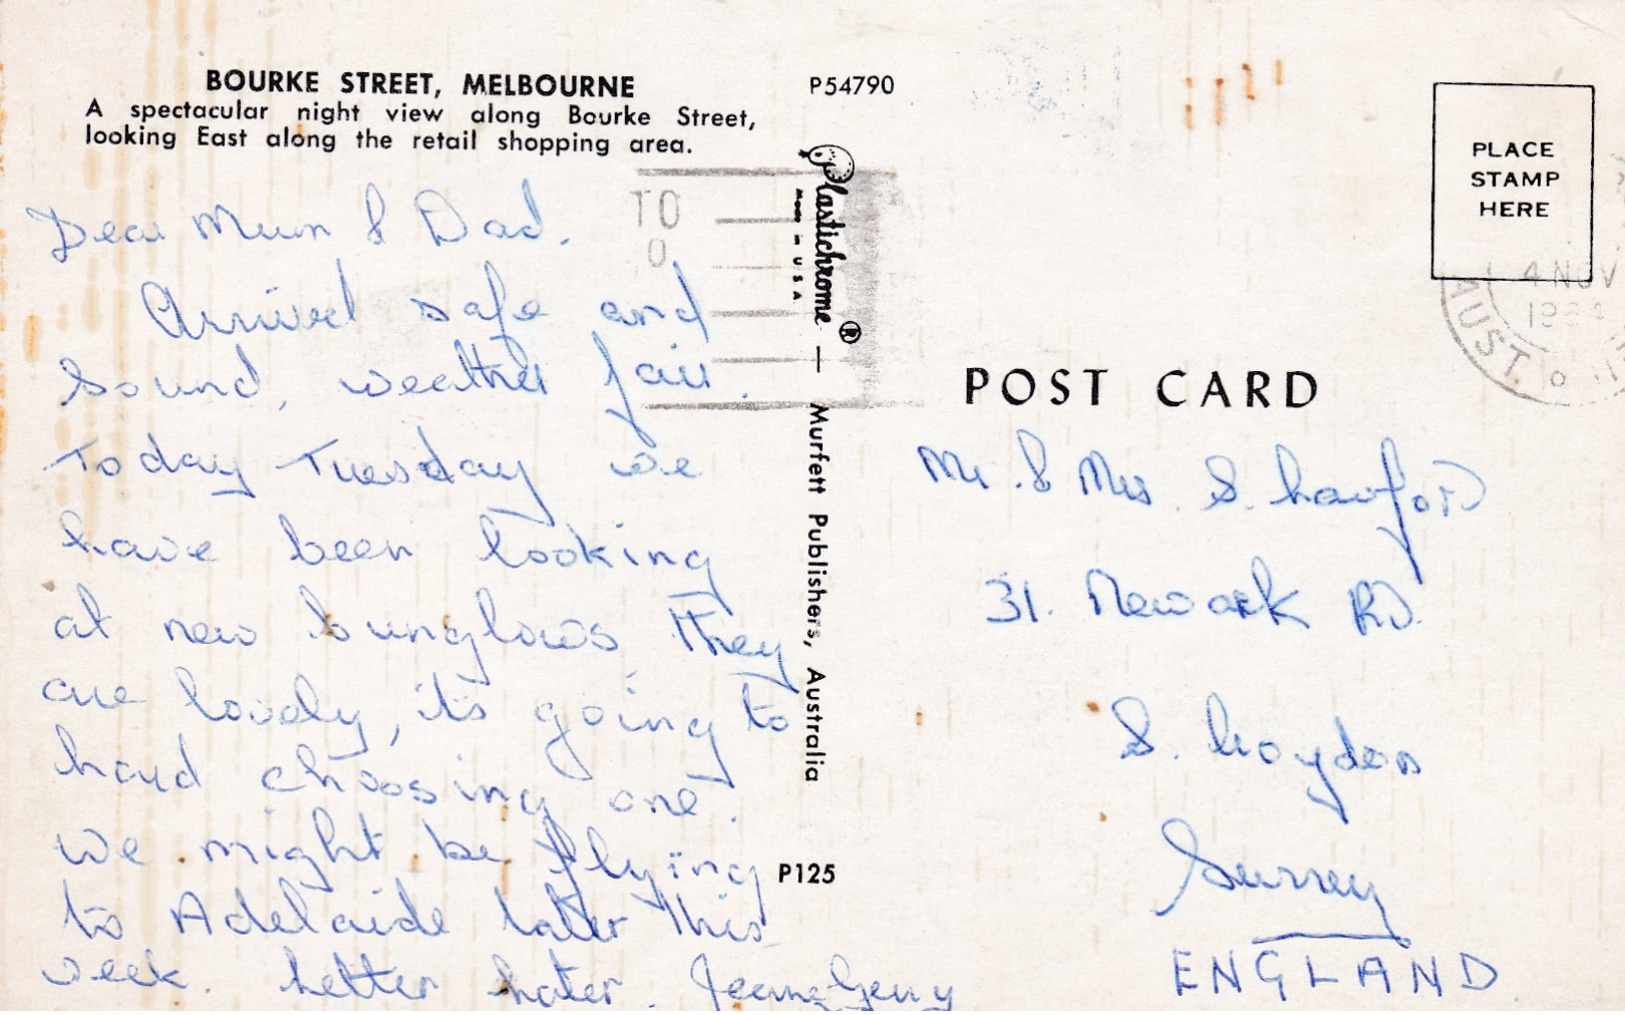 BOURKE STREET, MELBOURNE
A spectacular night view along Bourke Street,
looking East along the retail shopping area.
Dear Mum & Dad.
Arrived safe and
sound, weather fair.
Today Tuesday we
have been looking
at new bunglows They
are lovely, it's going to
hard choosing one.
we might be flying
to Adelaide later this
week. Letter Later. Jean & Gerry
P54790
TO
O
Plastichrome ®
MADE IN USA
— Murfett Publishers, Australia
P125
PLACE
STAMP
HERE
4 NOV
1964
AUST.
POST CARD
Mr. & Mrs. S.
31. Newark Rd.
S. Croydon
Surrey
ENGLAND.